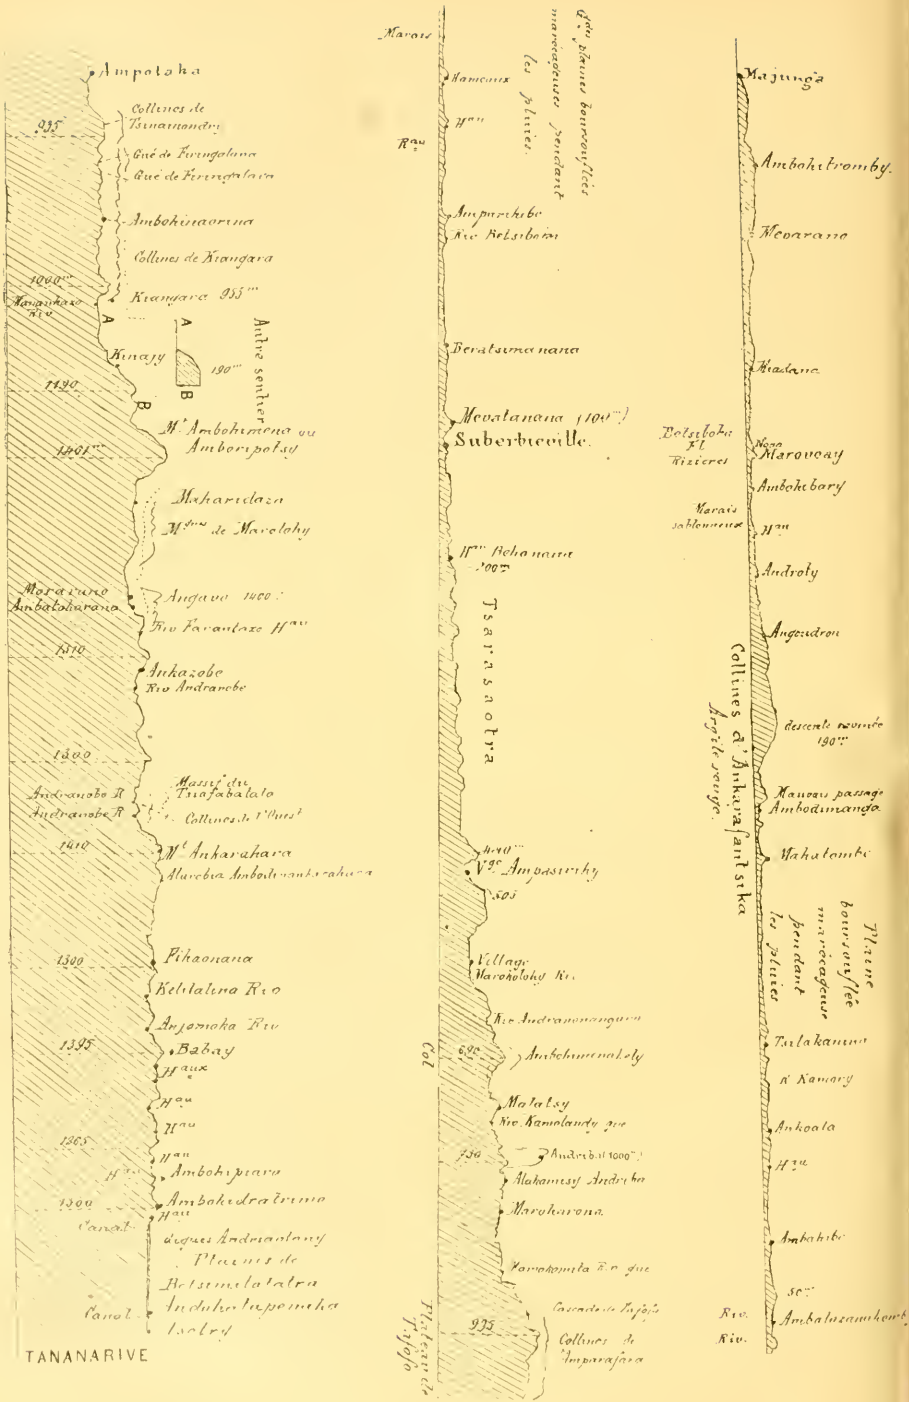 Ampotaka
Collines de
Tsinamondry
995
Gué de Firingalana
Gué de Firingalava
Ambohinaorina
Collines de Kiangara
1000m
Kiangara 955m
Manankazo
Riv
A
A
Autre sentier
Kinajy
190m
B
B
1190
Mt Ambohimena ou
Amboripotsy
1401m
Maharidaza
Mgnes de Marolohy
Morarano
Ambatoharana
Angavo 1400
Riv Farantazo Hau
1310
Ankazobe
Riv Andranobe
1300
Massif du
Tsiafabalala
Andranobe R
Andranobe R
Collines de l'Ouest
1410
Mt Ankarahara
Alarobia
Fihaonana
1300
Kelilalina Riv
Anjomoka Riv
1395
Babay
Haux
Hau
Hau
1265
Hau
Hau
Ambohipiara
1300
Ambohidratrimo
Hau
Canal
digues Andriantany
Plaines de
Betsimitatatra
Canal
Isotry
TANANARIVE
Marais
Gdes plaines boursouflées
marécageuses pendant
les pluies.
Hameaux
Hau
Rau
Amparihibe
Riv Betsiboka
Beratsimanana
Mevatanana (100m)
Suberbieville.
Hau Behonana
200m
Tsarasaotra
Vge Ampasiriky
505
Village
Marokolohy Riv.
Col
690
Malatsy
Riv. Kamolandy gué
730
Andriba (1000m)
Alakamisy Andriba
Maroharona
Marokomita Riv gué
Cascade de Tafofo
995
Collines de
Amparafara
Plateau de
Tafofo
Majunga
Ambohitromby.
Mevarano
Miadana
Betsiboka
Fl
Rizières
Marovoay
Ambohibary
Marais
sablonneux
Hau
Androty
Angoudrou
Collines d'Ankarafantsika
Argile rouge.
descente ravinée
190m
Mauvais passage
Ambodimanga
Mahatombo
Plaine
boursouflée
marécageuse
pendant
les pluies
Tsilakanina
R Kamory
Ankoala
Hau
Ambahibe
50m
Riv.
Riv.